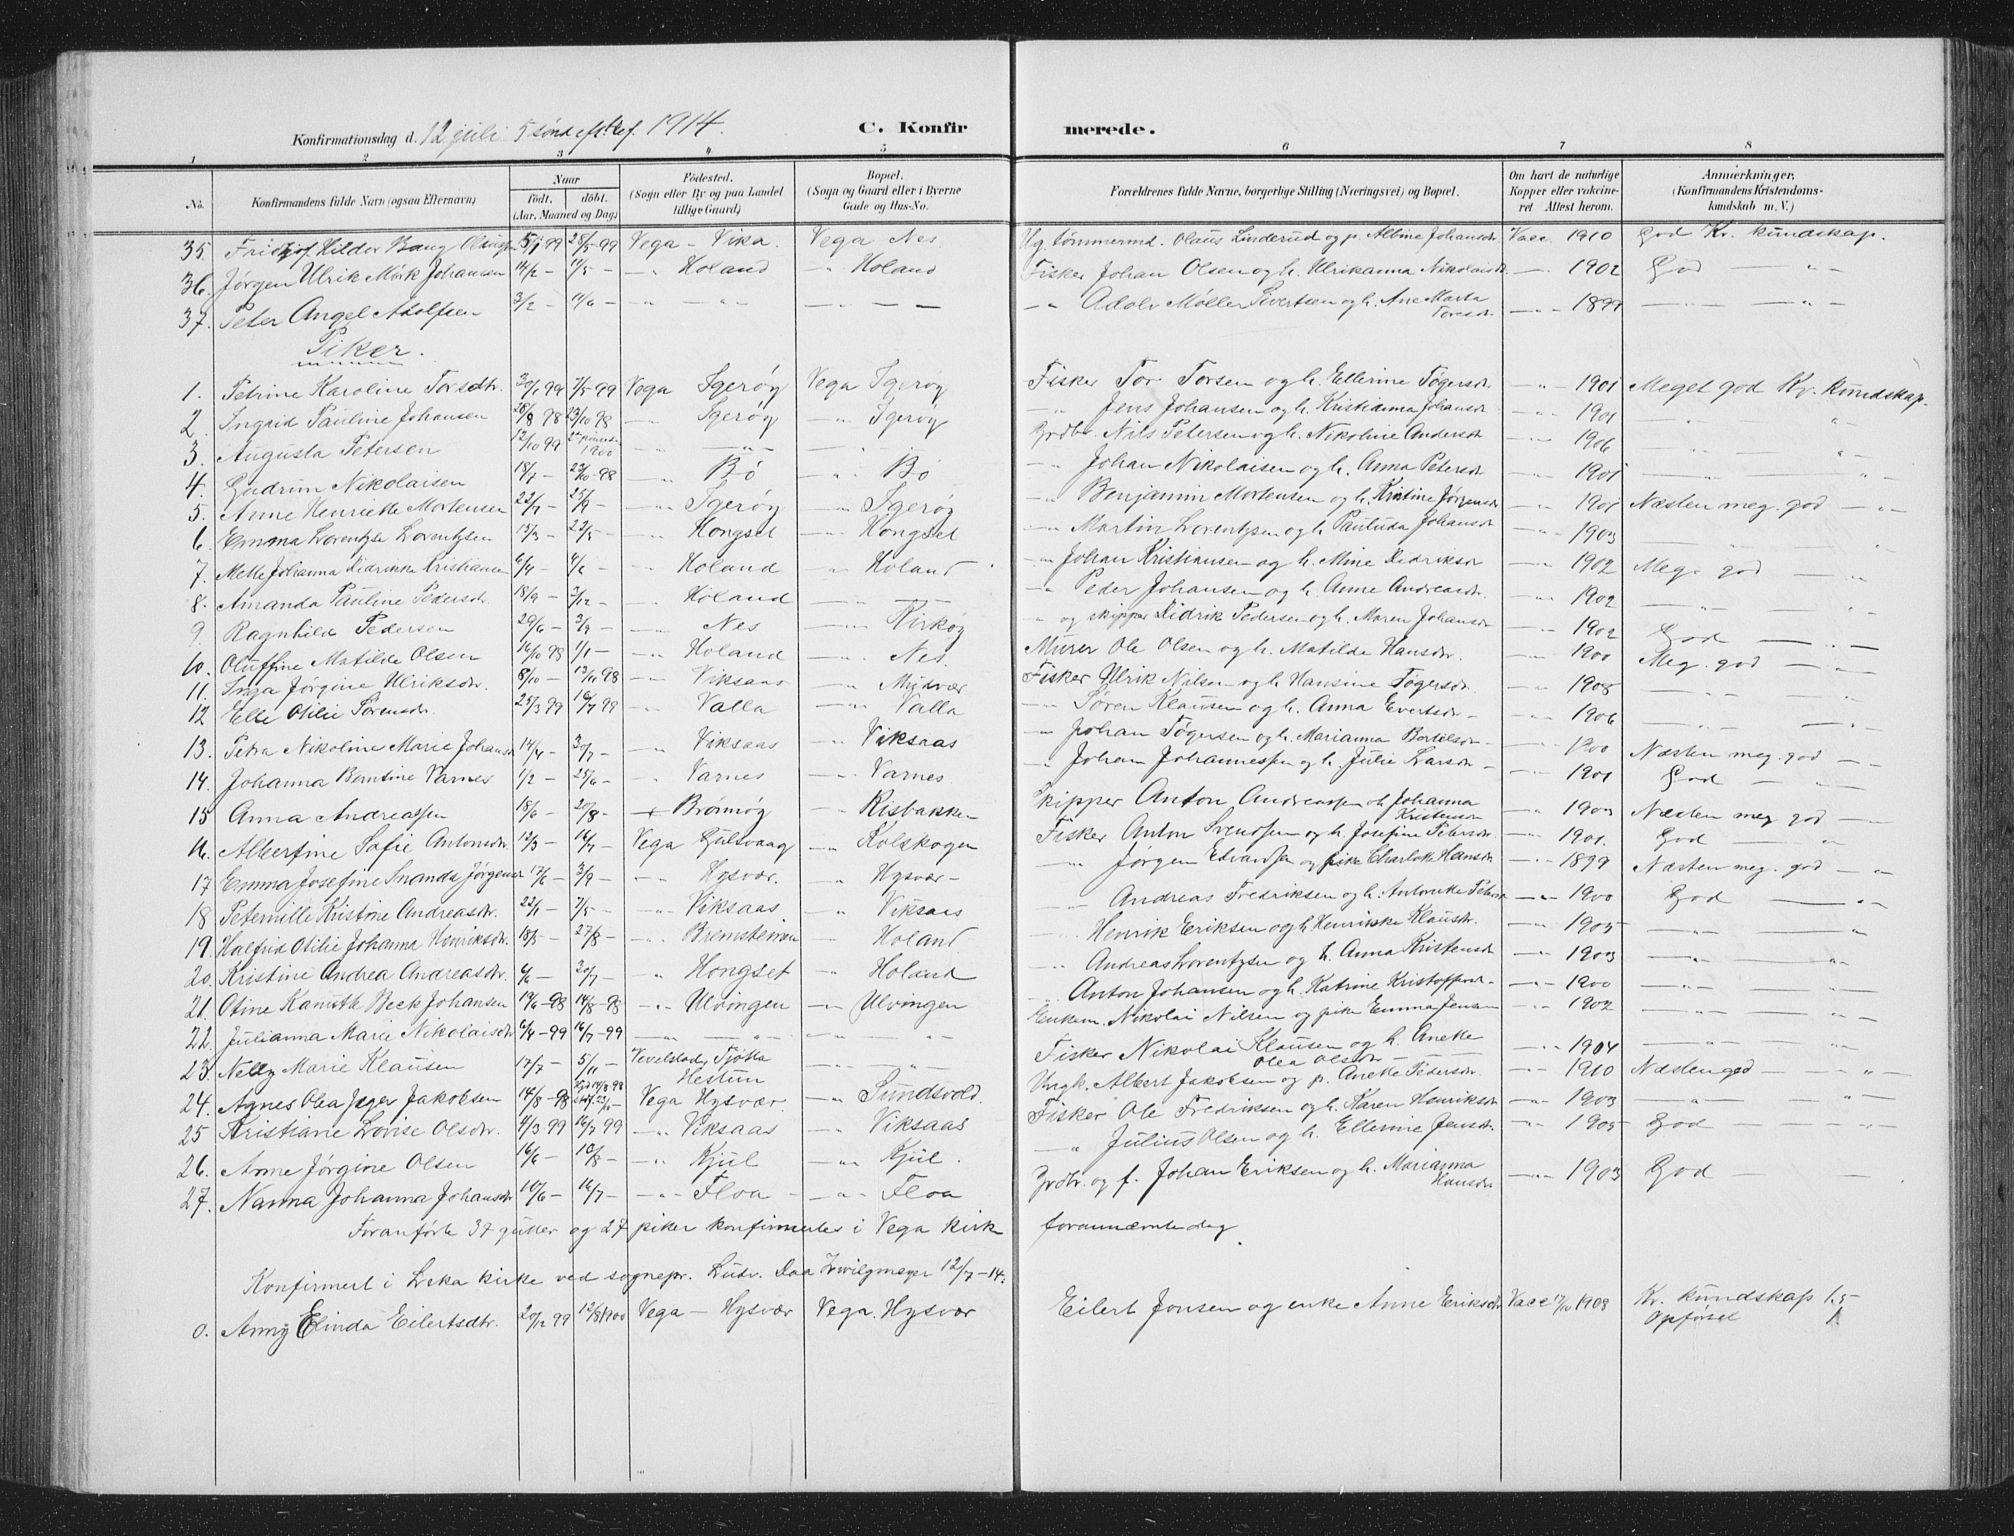 Konfirmationsdag d. 12 juli 5 sønd eft. tref. 1914.
C. Konfirmerede.
1 2 3 4 5 6 7 8
No. Konfirmandens fulde Navn (ogsaa Efternavn) Naar født, døbt. (Aar, Maaned og Dag) Fødested. (Sogn eller By og paa Landet tillige Gaard) Bopæl. (Sogn og Gaard eller i Byerne Gade og Hus-No. Forældrenes fulde Navne, borgerlige Stilling (Næringsvei) og Bopæl. Om havt de naturlige Kopper eller vaccineret Attest herom. Anmærkninger. (Konfirmandens Kristendomskundskab m. V.)
35. Fritjof Hildor Bang Olsen 5/1 99 28/5-99 Vega - Vika. Vega Nes. Ug. tømmermd. Olaus Linderud og p. Albine Johansdr. Vacc. 1910 God Kr. kundskap.
36. Jørgen Ulrik Mørk Johansen 14/2 - 11/5 - -"- Holand " Holand Fisker Johan Olsen og h. Ulrikanna Nikolaisdr. -"- 1902 God -"-
37. Peter Angel Adolfsen 3/2 - 11/6 - -"- -"- - - -"- Adolv Møller Sivertsen og h. Ane Marta Toresdr. -"- 1899 -"- -"-
Piker.
1. Petrine Karoline Torsdtr. 30/1 99 7/5-99 Vega Igerøy Vega Igerøy Fisker Tor Torsen og h. Ellerine Tøgersdr. -"- 1901 Meget god Kr. kundskap.
2. Ingrid Pauline Johansen 28/8 98 23/10 98 -"- Igerøy -"- Igerøy -"- Jens Johansen og h. Kristianna Johansdr. -"- 1901 -"- -"-
3. Augusta Petersen 12/10 99 1900 -"- -"- Grdbr. Nils Petersen og h. Nikoline Andersdr. -"- 1906 -"- -"-
4. Gudrun Nikolaisen 18/7 - 23/10-98 -"- Bø " Bø -"- Johan Nikolaisen og h. Anna Petersdr. -"- 1901 -"- -"-
5. Anne Henriette Mortensen 22/7 - 25/9 - -"- Igerøy -"- Igerøy -"- Benjamin Mortensen og h. Kristine Jørgensdr. -"- 1901 Næsten meg. god -"-
6. Emma Lorentse Lorentsen 15/3 - 22/5 - -"- Hongset -"- Hongset -"- Martin Lorentsen og h. Pauluda Johansdr. -"- 1903 -"- -"-
7. Mette Johanna Didrikke Kristiansen 6/4 - 4/6 - -"- Holand " Holand -"- Johan Kristiansen og h. Mine Didriksdr. -"- 1902 Meg. god -"-
8. Amanda Pauline Pedersdr. 18/9 - 3/12 - -"- Holand -"- -"- Peder Johansen og h. Anne Andreasdr. -"- 1902 -"- -"-
9. Ragnhild Pedersen 29/6 - 3/9 - -"- Nes -"- Kirkøy " og skipper Didrik Pedersen og h. Maren Johansdr. -"- 1902 God -"-
10. Oluffine Matilde Olsen 16/10 98 1/1 - -"- Holand -"- Nes. Murer Ole Olsen og h. Matilde Hansdr. -"- 1900 Meg. god -"-
11. Inga Jørgine Ulriksdr. 8/10 - 13/11 98 -"- Viksaas -"- Muddvær Fisker Ulrik Nilsen og h. Hansine Tøgersdr. -"- 1908 -"- -"-
12 Elle Otilie Sørensdr. 25/3 99 16/7 99 -"- Valla -"- Valla -"- Søren Klausen og h. Anna Evertsdr. -"- 1906 -"- -"-
13. Petra Nikoline Marie Johansdr. 14/4 - 30/7 - -"- Viksaas -"- Viksaas -"- Johan Tøgersen og h. Marianna Bertelsdr. -"- 1900 Næsten meg. god -"-
14. Johanna Berntine Varnes 1/2 - 25/6 - -"- Varnes -"- Varnes. -"- Johan Johannessen og h. Julie Larsdr. -"- 1901 God -"-
15 Anna Andreassen 18/6 - 20/8 - + Brønnøy " Risbakken Skipper Anton Andreassen og h. Johanna Kristensdr. -"- 1903 Næsten meg. god -"-
16. Albertine Sofie Antonsdr. 12/3 - 16/7 - Vega Gulsvaag -"- Kolskogen Fisker Anton Svendsen og h. Josefine Petersdr. -"- 1901. God -"-
17 Emma Josefine Smanda Jørgensdr. 17/6 - 3/9 - -"- Hysvær. -"- Hysvær - -"- Jørgen Edvardsen og pike Charlotte Hansdr. -"- 1899 Næsten meg. god -"-
18 Pernille Kristine Andreasdr. 22/1 - 7/5 - -"- Viksaas. " Viksaas -"- Andreas Fredriksen og h. Antonette Petersdr. -"- 1900 God -"-
19. Halfrid Otilie Johanna Henriksdr. 18/5 - 27/8 - -"- Bremsteinen " Holand -"- Henrik Eriksen og h. Henrikke Klausdr. -"- 1905 -"- -"-
20. Kristine Andrea Andreasdr. 6/6 - 30/7 - " Hongset -"- Holand -"- Andreas Lorentsen og h. Anna Kristensdr. -"- 1903 -"- -"-
21. Otine Kanuth Beck Johansen 19/6-98 14/8-98 -"- Ulvingen -"- Ulvingen -"- Anton Johansen og h. Katrine Kristoffersdr. -"- 1900 -"- -"-
22. Julianna Marie Nikolaisdr. 6/4-99 16/7-99 -"- -"- -"- -"- Enkem. Nikolai Nilsen og pike Emma Jensen -"- 1902 -"- -"-
23. Nelly Marie Klausen 17/7 - 5/11 - Tevelstad, Tjøtta Hestun -"- -"- Fisker Nikolai Klausen og h. Anette Olea Olsdr. -"- 1904 -"- -"-
24. Agnes Olea Jæger Jakobsen 14/8-98 Vega Hysvær. -"- Sundsvold. Ungk. Albert Jakobsen og p. Anette Pedersdr. -"- 1910 Næsten god -"-
25 Kristiane Lovise Olsdr. 4/3 99 16/7 99 -"- Viksaas -"- Viksaas Fisker Ole Fredriksen og h. Karen Henriksdr. -"- 1903 -"- -"-
26. Anne Jørgine Olsen 16/6 - 13/8 - -"- Kjul -"- Kjul. -"- Julius Olsen og h. Ellerine Jensdr. -"- 1905 God -"-
27. Nanna Johanna Johansdr. 10/6 - 16/7 - -"- Floa -"- Floa Grdbr. og f. Johan Eriksen og h. Marianna Hansdr. -"- 1903 God
Foranførte 37 gutter og 27 piker konfirmertes i Vega kirke forannævnte dag.
Konfirmert i Leka kirke ved sognepr. Ludv. Daa Zwilgmeyer 12/7-14:
0. Anny Elinda Eilertsdtr. 20/12 99 12/8 1900 Vega - Hysvær Vega. Hysvær Eilert Jonsen og enke Anne Eriksdtr. Vacc 17/10 1908 Kr. kundskap 1.5
Opførsel 1